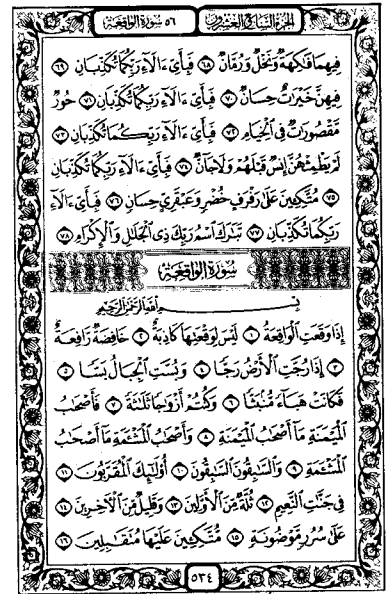 الجزء السابع والعشرون ٥٦ سورة الواقعة
فِيهِمَا فَٰكِهَةٌ وَنَخْلٌ وَرُمَّانٌ ٦٨ فَبِأَيِّ ءَالَآءِ رَبِّكُمَا تُكَذِّبَانِ ٦٩
فِيهِنَّ خَيْرَٰتٌ حِسَانٌ ٧٠ فَبِأَيِّ ءَالَآءِ رَبِّكُمَا تُكَذِّبَانِ ٧١ حُورٌ
مَّقْصُورَٰتٌ فِي ٱلْخِيَامِ ٧٢ فَبِأَيِّ ءَالَآءِ رَبِّكُمَا تُكَذِّبَانِ ٧٣
لَمْ يَطْمِثْهُنَّ إِنسٌ قَبْلَهُمْ وَلَا جَآنٌّ ٧٤ فَبِأَيِّ ءَالَآءِ رَبِّكُمَا تُكَذِّبَانِ
٧٥ مُتَّكِـِٔينَ عَلَىٰ رَفْرَفٍ خُضْرٍ وَعَبْقَرِيٍّ حِسَانٍ ٧٦ فَبِأَيِّ ءَالَآءِ
رَبِّكُمَا تُكَذِّبَانِ ٧٧ تَبَٰرَكَ ٱسْمُ رَبِّكَ ذِي ٱلْجَلَٰلِ وَٱلْإِكْرَامِ ٧٨
سُورَةُ الوَاقِعَةِ
بِسْمِ ٱللَّهِ ٱلرَّحْمَٰنِ ٱلرَّحِيمِ
إِذَا وَقَعَتِ ٱلْوَاقِعَةُ ١ لَيْسَ لِوَقْعَتِهَا كَاذِبَةٌ ٢ خَافِضَةٌ رَّافِعَةٌ
٣ إِذَا رُجَّتِ ٱلْأَرْضُ رَجًّا ٤ وَبُسَّتِ ٱلْجِبَالُ بَسًّا ٥
فَكَانَتْ هَبَآءً مُّنۢبَثًّا ٦ وَكُنتُمْ أَزْوَٰجًا ثَلَٰثَةً ٧ فَأَصْحَٰبُ
ٱلْمَيْمَنَةِ مَآ أَصْحَٰبُ ٱلْمَيْمَنَةِ ٨ وَأَصْحَٰبُ ٱلْمَشْـَٔمَةِ مَآ أَصْحَٰبُ
ٱلْمَشْـَٔمَةِ ٩ وَٱلسَّٰبِقُونَ ٱلسَّٰبِقُونَ ١٠ أُو۟لَٰٓئِكَ ٱلْمُقَرَّبُونَ ١١
فِي جَنَّٰتِ ٱلنَّعِيمِ ١٢ ثُلَّةٌ مِّنَ ٱلْأَوَّلِينَ ١٣ وَقَلِيلٌ مِّنَ ٱلْـَٔاخِرِينَ ١٤
عَلَىٰ سُرُرٍ مَّوْضُونَةٍ ١٥ مُّتَّكِـِٔينَ عَلَيْهَا مُتَقَٰبِلِينَ ١٦
٥٣٤